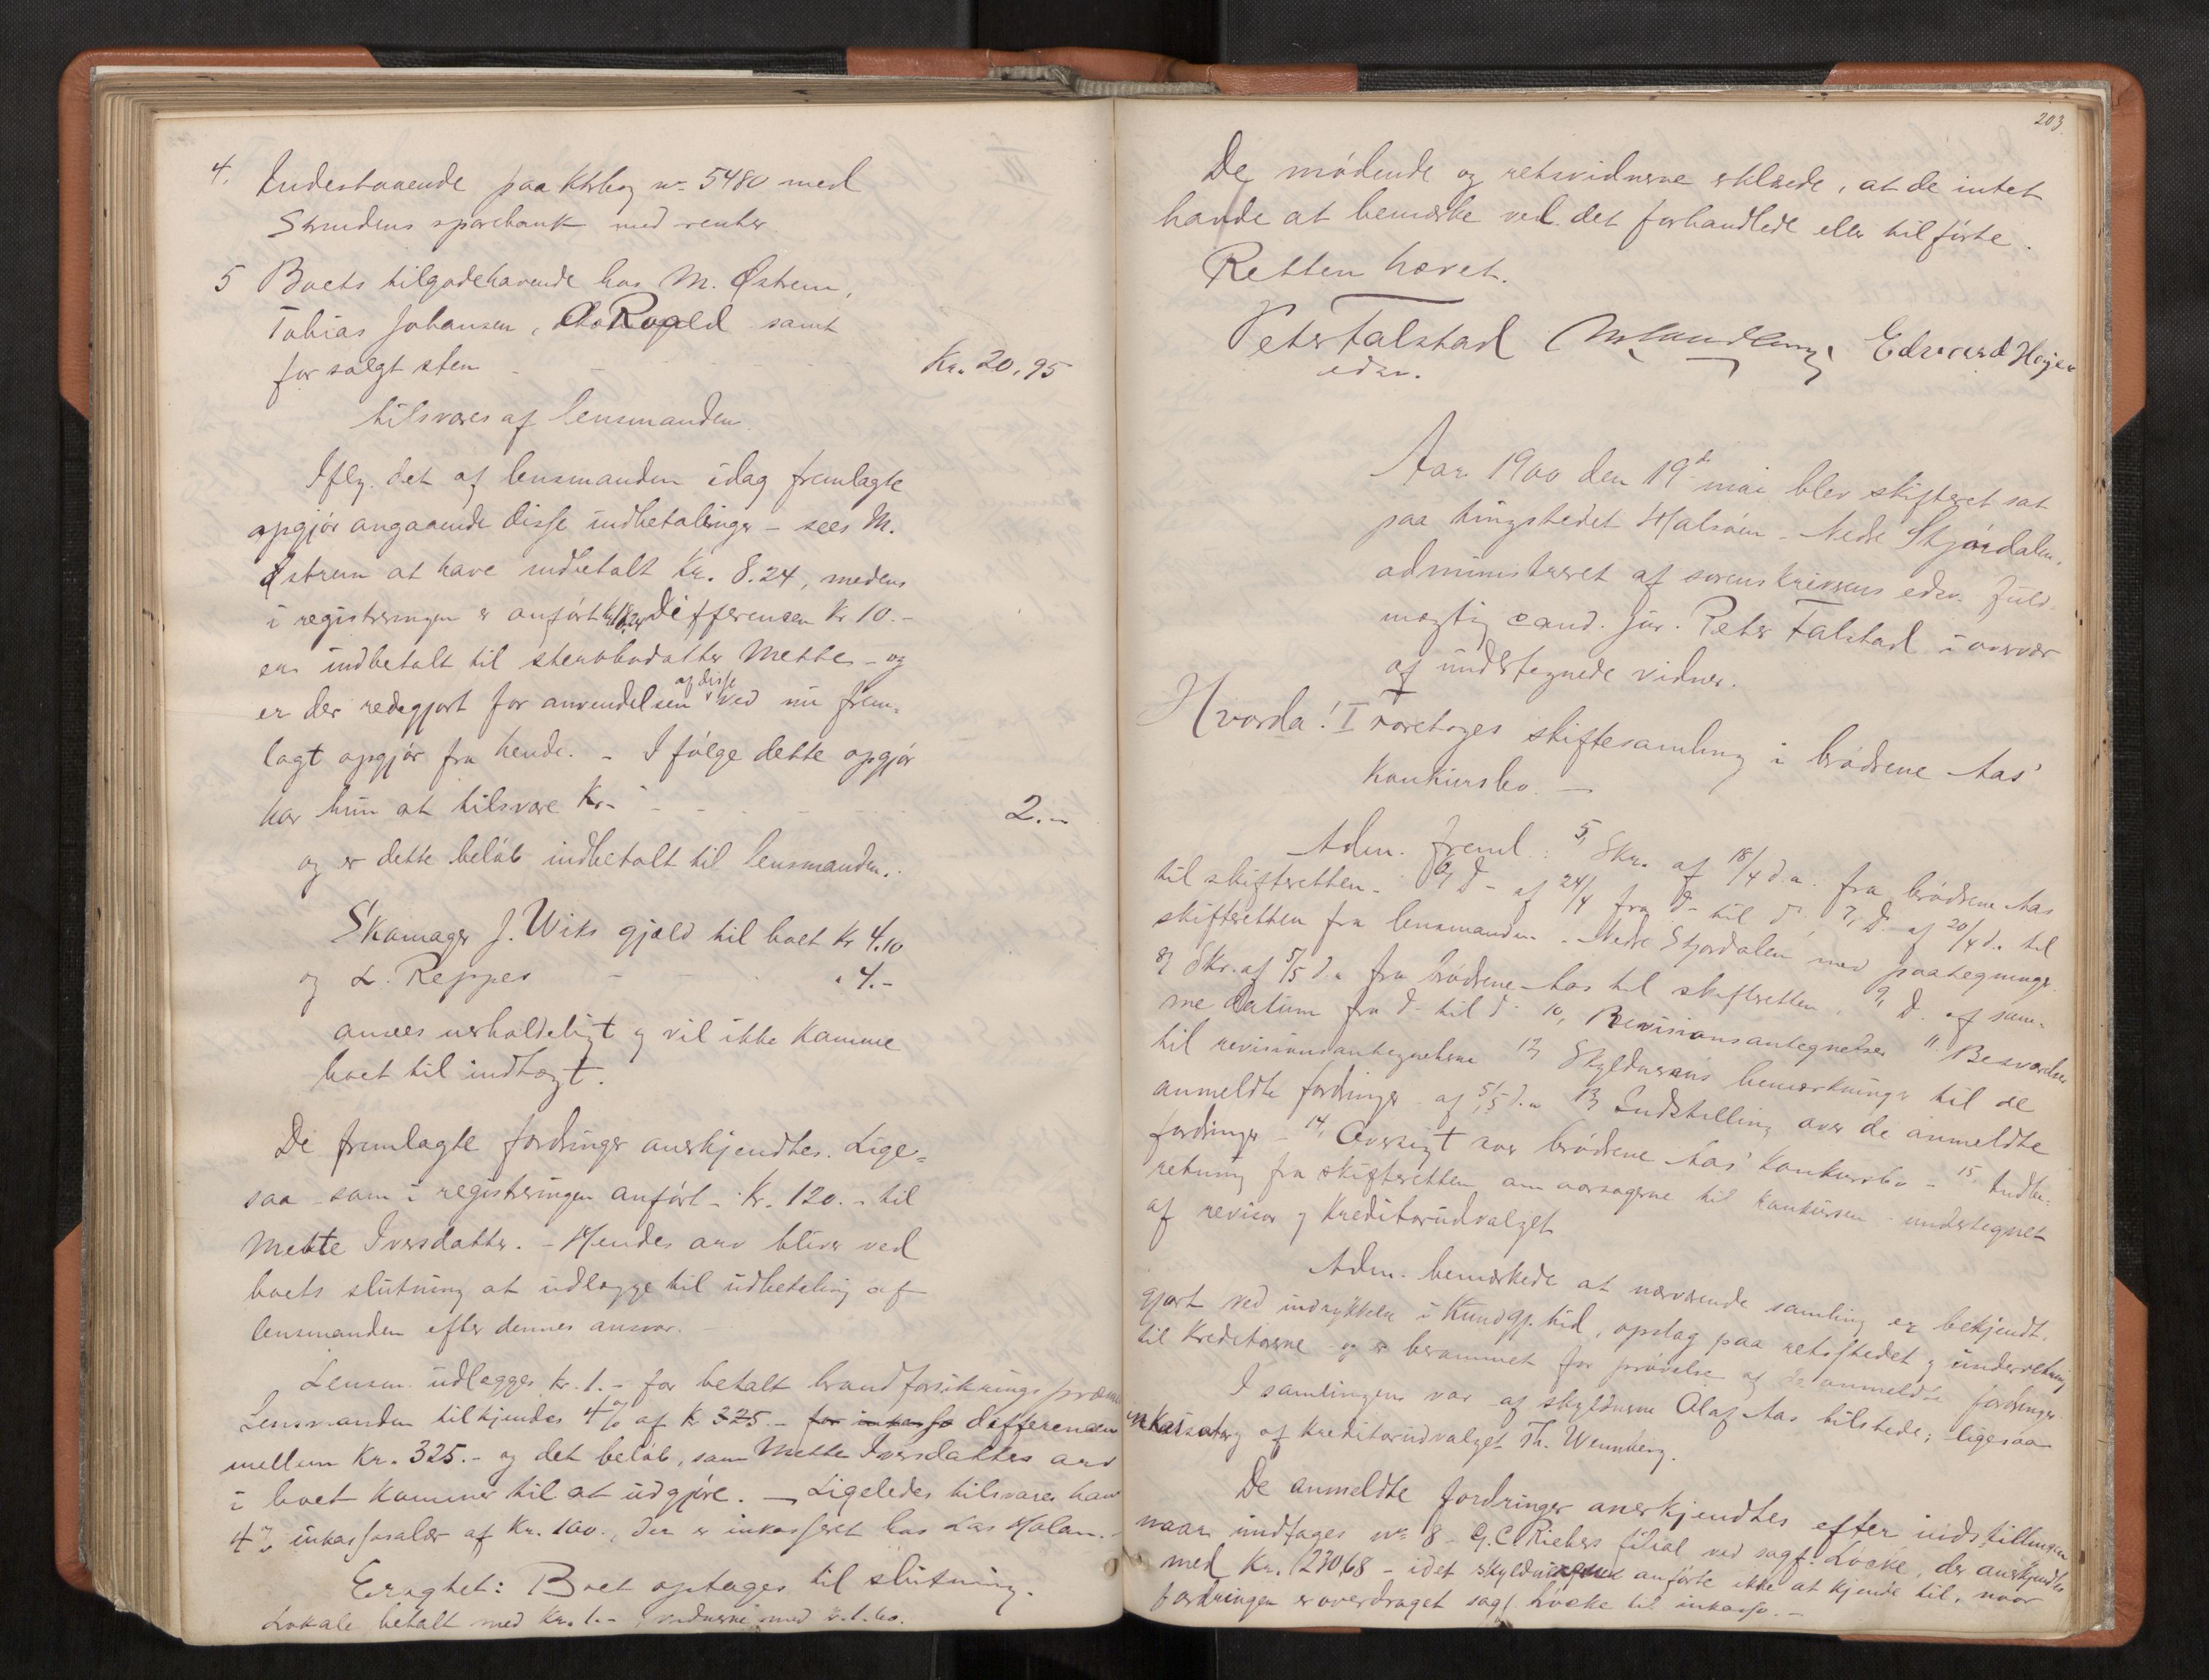 4. Indestaaende paa Ktrbog no 5480 med
Strindens sparebank med renter.
5 Boets tilgodehavende hos M. Østrem,
Tobias Johansen, Roald samt
for solgt sten - - - Kr. 20,95
tilsvares af lensmanden.
Iflg. det af lensmanden idag fremlagte
opgjør angaaende disse indbetalinger - sees M.
Østrem at have indbetalt Kr. 8.24, medens
i registreringen er anført kr 18.24 Differencen Kr 10.-
er indbetalt til stervbodatter Mette - og
er der redegjort for anvendelsen af disse ved nu frem-
lagt opgjør fra hende. - I følge dette opgjør
har hun at tilsvare Kr. - - - 2.-
og er dette beløb indbetalt til lensmanden.
Skomager J. Wiks gjæld til boet kr 4.10
og L. Reppes - - " 4.-
ansees uerholdeligt og vil ikke komme
boet til indtægt.
De fremlagte fordringer anerkjendtes. Lige-
saa - som i registreringen anført - Kr. 120.- til
Mette Iversdatter. - Hendes arv bliver ved
boets slutning at udlægge til udbetaling af
lensmanden efter dennes ansvar.
Lensm. udlægges kr. 1.- for betalt brandforsikringspræmie
Lensmanden tilkjendes 4% af kr 325 - for inkasso differencen
mellem Kr. 325.- og det beløb, som Mette Iversdatters arv
i boet kommer til at udgjøre. - Ligeledes tilsvares han
4% inkassosalær af Kr. 100., der er inkasseret hos Lars Molan.-
Eragtet: Boet optages til slutning.
Lokale betalt med Kr. 1.- vidnerne med k. 1.60.
203.
De mødende og retsvidnerne erklærede, at de intet
havde at bemærke ved det forhandlede eller tilførte.
Retten hævet.
Peter Falstad Edvard Høyer
edsv.
Aar 1900 den 19de mai blev skifteret sat
paa tingstedet Halsøen - Nedre Stjørdalen,
administreret af sorenskriverens edsv. fuld-
mægtig cand. jur. Peter Falstad i overvær
af undertegnede vidner.
Hvorda! I foretoges skiftesamling i brødrene Aas'
Konkursbo. -
Adm. freml.: 5, Skr. af 18/4 d.a. fra brødrene Aas
til skifteretten - 6, D- af 24/4 fra d- til d-, 7, D- af 20/4 d.a. til
skifteretten fra lensmanden i Nedre Stjørdalen med paategninger.
8, Skr. af 5/5 d.a. fra brødrene Aas til skifteretten, 9, D. af sam-
me datum fra d- til d- 10, Revisionsantegnelser 11. Besvarelser
til revisionsantegnelserne 12, Skyldnerens bemærkninger til de
anmeldte fordringer af 5/5 d.a 13, Indstilling over de anmeldte
fordringer - 14, Oversigt over brødrene Aas' Konkursbo - 15. Indbe-
retning fra skifteretten om aarsagerne til konkursen - undertegnet
af revisor og Kreditorudvalget
Adm. bemærkede at nærværende samling er bekjendt-
gjort ved indrykkelse i Kundgj. tid, opslag paa retsstedet og underretning
til Kreditorerne og er berammet for prøvelse af de anmeldte fordringer.
I samlingen var af skyldnerne Olaf Aas tilstede; ligesaa
af kreditorudvalget Th. Wennberg.
De anmeldte fordringer anerkjendtes efter indstillingen
naar undtages no 8 - G. C. Riebers filial ved sagf. Løcke, der anerkjendtes
med Kr. 1230,68 - idet skyldneren anførte ikke at kjende til, naar
fordringen er overdraget sagf. Løcke til inkasso.-